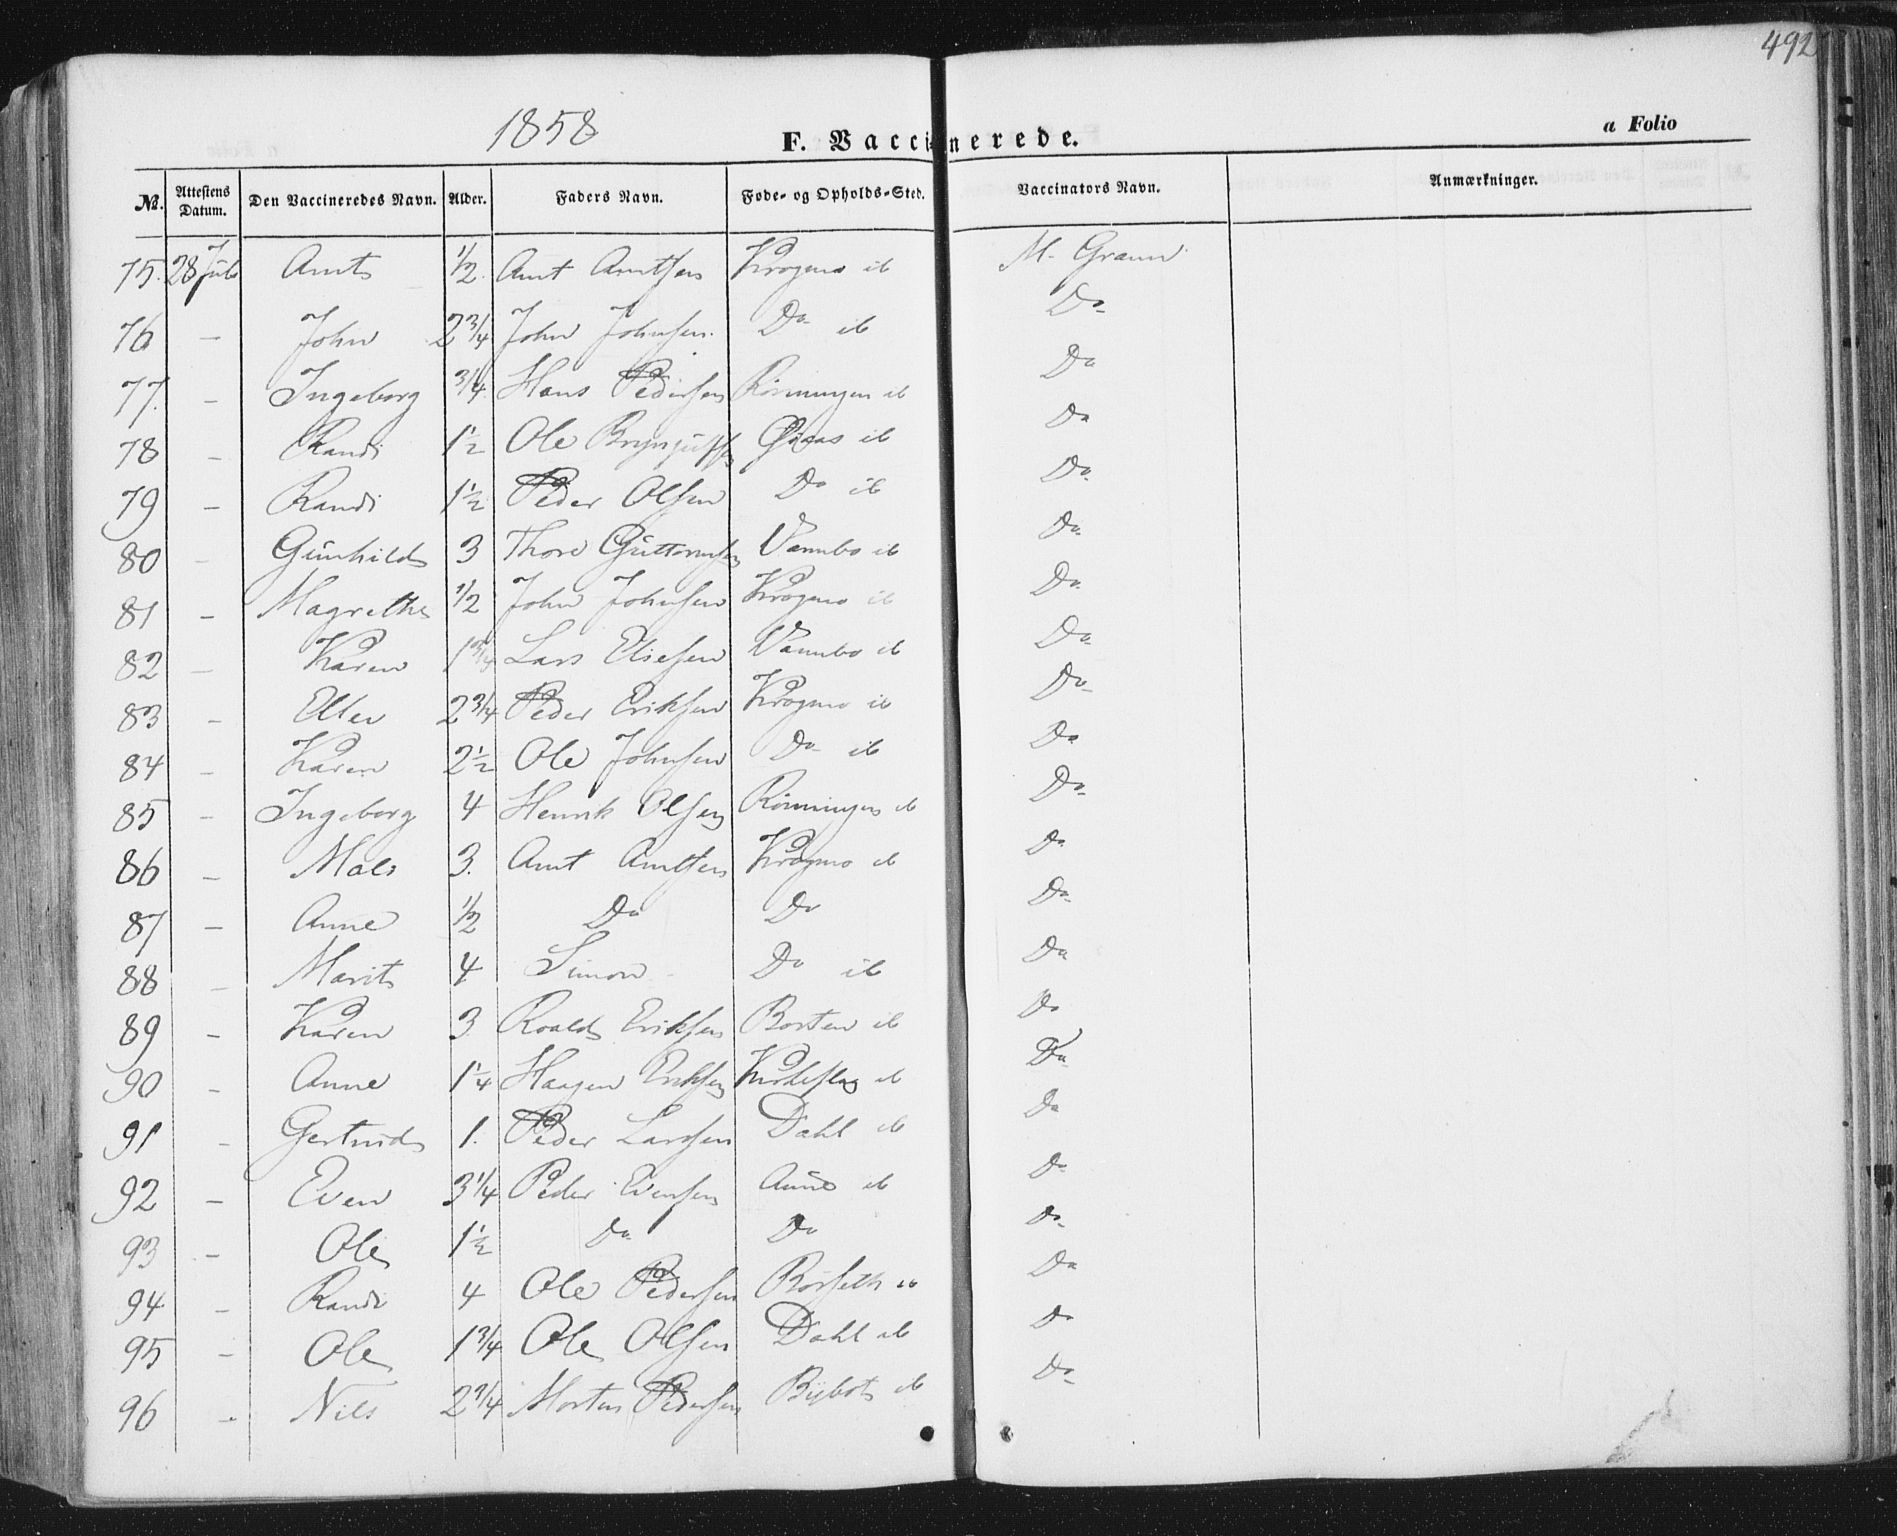 492
1858
F. Vaccinerede.
a Folio
№. Attestens Datum. Den Vaccineredes Navn. Alder. Faders Navn. Føde- og Opholds-Sted. Vaccinators Navn. Anmærkninger.
75. 28 Juli Arnt ½ Arnt Arntsen Krogmo ib M. Gram
76 - John 2¾ John Johnsen Do ib Do
77. - Ingeborg ¾ Hans Pedersen Rönningen ib Do
78 - Randi 1½ Ole Brynjulfs ib Do
79 - Randi 1½ Peder Olsen Do ib Do
80 - Gunhild 3 Thore Guttormsen Vambo ib Do
81 - Magrethe ½ John Johnsen Krogmo ib Do
82 - Karen 1¾ Lars Eliesen Vambo ib Do
83 - Ellen 2¾ Peder Eriksen Krogmo ib Do
84 - Karen 2½ Ole Johnsen Do ib Do
85 - Ingeborg 4 Henrik Olsen Rönningen ib Do
86 - Mali 3. Arnt Arntsen Krogmo ib Do
87 - Anne ½ Do Do Do
88 - Marit 4 Simon Do ib Do
89 - Karen 3 Roald Eriksen Borten ib Do
90 - Anne 1¼ Haagen Eriksen ib Do
91 - Gertrud 1. Peder Larssen Dahl ib Do
92 - Even 3¼ Peder Evensen Aune ib Do
93 - Ole 1½ Do Do Do
94 - Randi 4 Ole Pedersen Börseth ib Do
95 - Ole 1¾ Ole Olsen Dahl ib Do
96 - Nils 2¾ Morten Pedersen ib Do